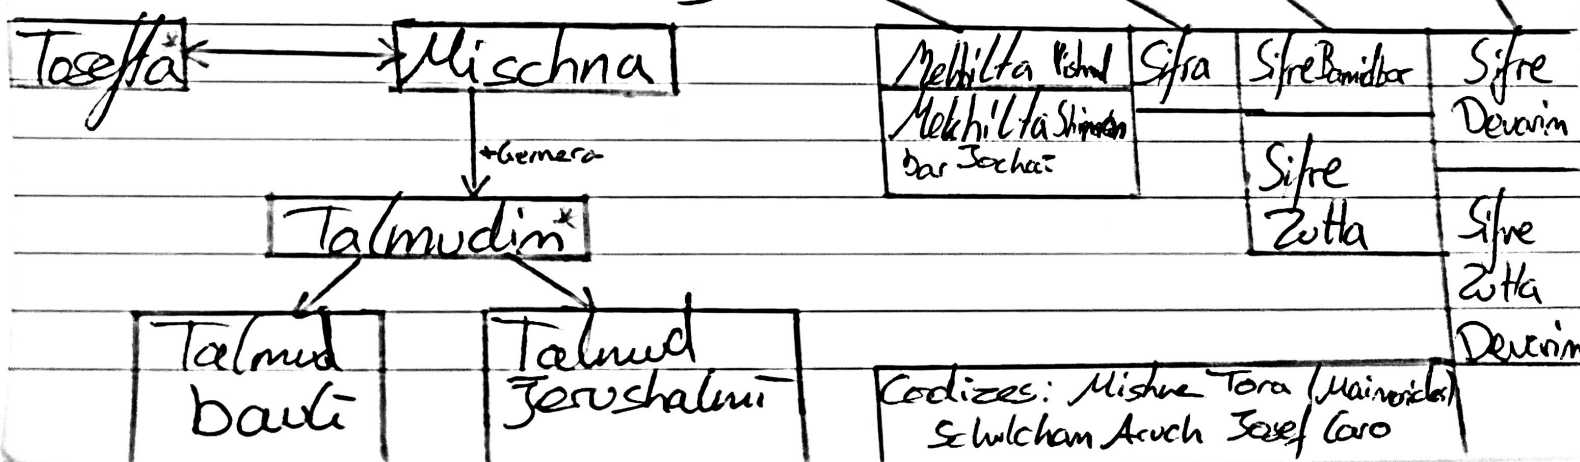 Tosefta*
Mischna
+Gemera
Talmudim*
Talmud
bavli
Talmud
Jerushalmi
Mekhilta Yishmael
Mekhilta Shimon
bar Jochai
Sifra
Sifre Bamidbar
Sifre
Zutta
Sifre
Devarim
Sifre
Zutta
Devarim
Codizes: Mishne Tora (Maimonides)
Schulchan Aruch Josef Caro